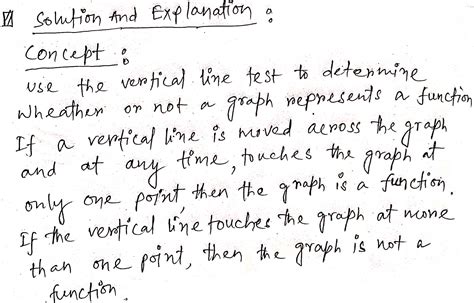 Solution And Explanation :
Concept :
use the vertical line test to determine
wheather or not a graph represents a function
If a vertical line is moved across the graph
and at any time, touches the graph at
only one point, then the graph is a function.
If the vertical line touches the graph at more
than one point, then the graph is not a
function.